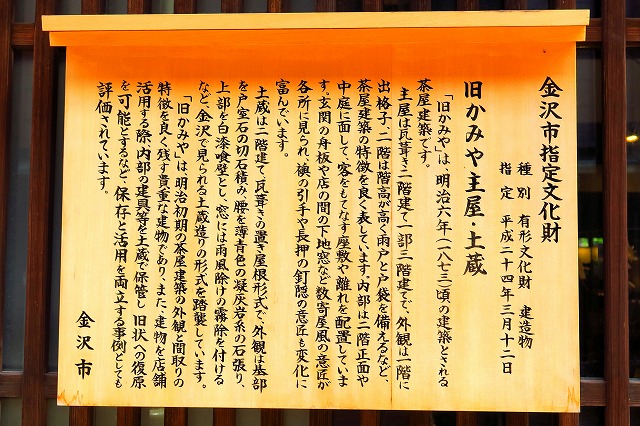 金沢市指定文化財
種 別 有形文化財 建造物
指 定 平成二十四年三月十二日
旧かみや主屋・土蔵
「旧かみや」は、明治六年(一八七三)頃の建築とされる
茶屋建築です。
主屋は瓦葺き二階建て一部三階建てで、外観は一階に
出格子、二階は階高が高く雨戸と戸袋を備えるなど、
茶屋建築の特徴を良く表しています。内部は二階正面や
中庭に面して、客をもてなす座敷や離れを配置していま
す。玄関の舟板や店の間の下地窓など数寄屋風の意匠が
各所に見られ、襖の引手や長押の釘隠の意匠も変化に
富んでいます。
土蔵は二階建て、瓦葺きの置き屋根形式で、外観は基部
を戸室石の切石積み、腰を薄青色の凝灰岩系の石張り、
上部を白漆喰壁とし、窓には雨風除けの霧除を付ける
など、金沢で見られる土蔵造りの形式を踏襲しています。
「旧かみや」は、明治初期の茶屋建築の外観と間取りの
特徴を良く残す貴重な建物であり、また、建物を店舗
活用する際、内部の建具等を土蔵で保管し、旧状への復原
を可能とするなど、保存と活用を両立する事例としても
評価されています。
金沢市